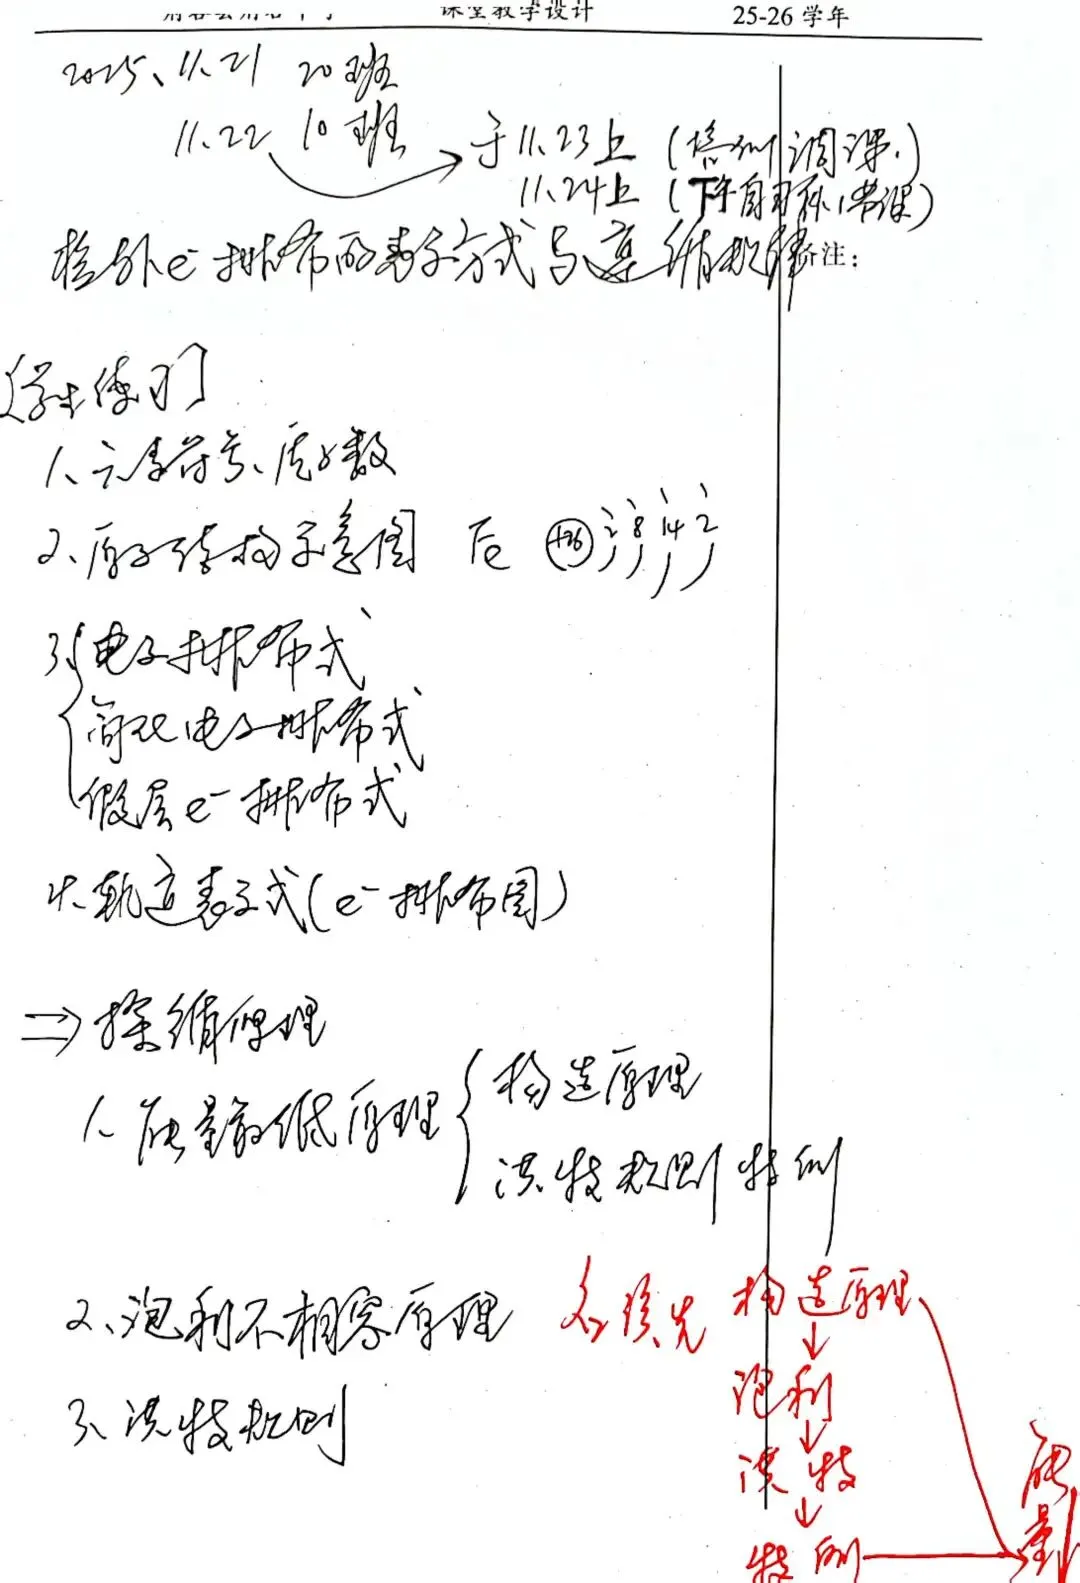 课堂教学设计 25-26 学年
2025、11.21 20班
11.22 10班 → 于11.23上 (培训调课.)
11.24上 (下午自习补1节课)
核外e⁻排布的表示方式与遵循规律
备注:
[学生练习]
1、元素符号、原子数
2、原子结构示意图 Fe (+26) 2 8 14 2
3、{电子排布式
简化电子排布式
价层e⁻排布式
4、轨道表示式(e⁻排布图)
⇒ 遵循原理
1、能量最低原理 { 构造原理
洪特规则特例
2、泡利不相容原理
3、洪特规则
先 构造原理
↓
泡利
↓
洪特
↓
特例
能量